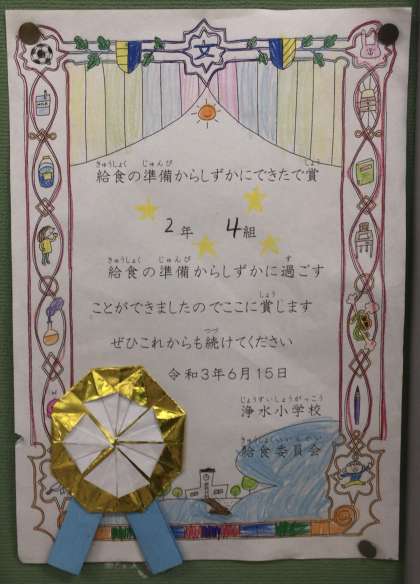 文
きゅうしょく じゅんび しょう
給食の準備からしずかにできたで賞
2年 4組
きゅうしょく じゅんび す
給食の準備からしずかに過ごす
しょう
ことができましたのでここに賞します
つづ
ぜひこれからも続けてください
令和3年6月15日
じょうすいしょうがっこう
浄水小学校
きゅうしょくいいんかい
給食委員会